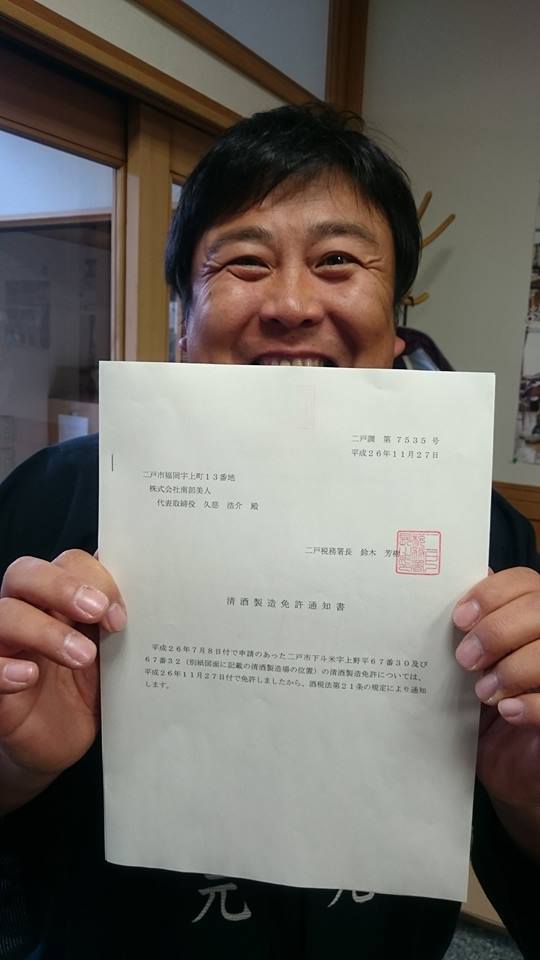 二戸調 第 7535 号
平成26年11月27日
二戸市福岡字上町13番地
株式会社南部美人
代表取締役 久慈 浩介 殿
二戸税務署長 鈴木 芳樹
清酒製造免許通知書
平成26年7月8日付で申請のあった二戸市下斗米字上野平67番30及び
67番32(別紙図面に記載の清酒製造場の位置)の清酒製造免許については、
平成26年11月27日付で免許しましたから、酒税法第21条の規定により通知
します。
元